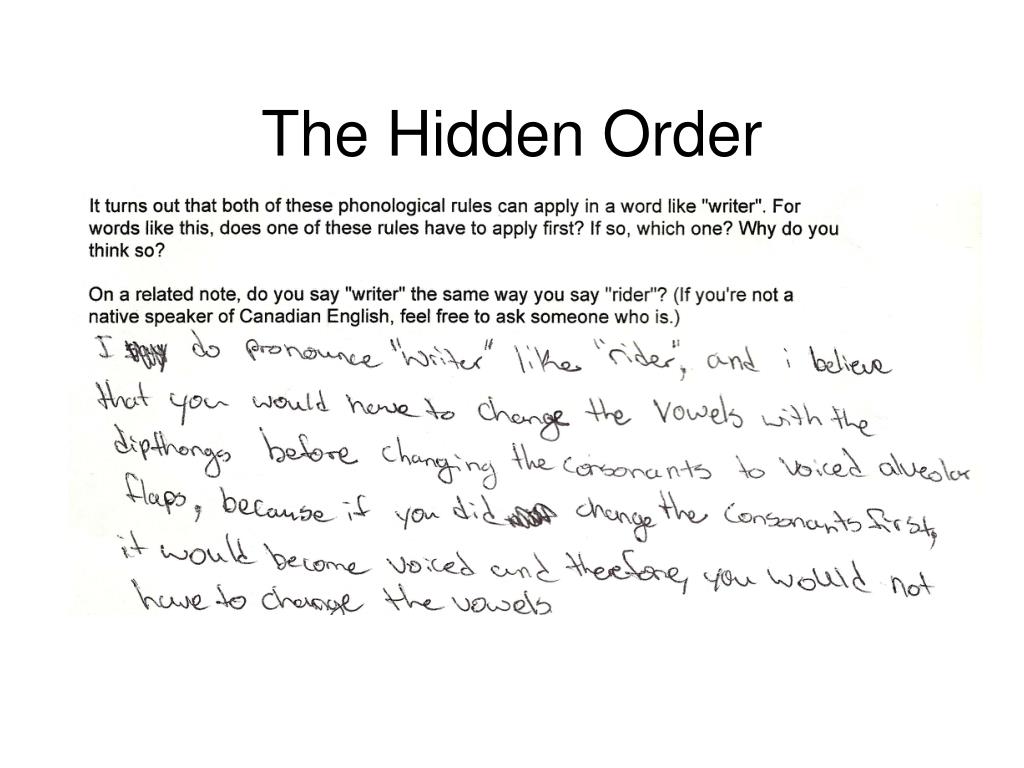 The Hidden Order
It turns out that both of these phonological rules can apply in a word like "writer". For
words like this, does one of these rules have to apply first? If so, which one? Why do you
think so?
On a related note, do you say "writer" the same way you say "rider"? (If you're not a
native speaker of Canadian English, feel free to ask someone who is.)
I do pronounce "writer" like "rider", and i believe
that you would have to change the vowels with the
dipthongs before changing the consonants to voiced alveolar
flaps, because if you did change the consonants first,
it would become voiced and therefore, you would not
have to change the vowels